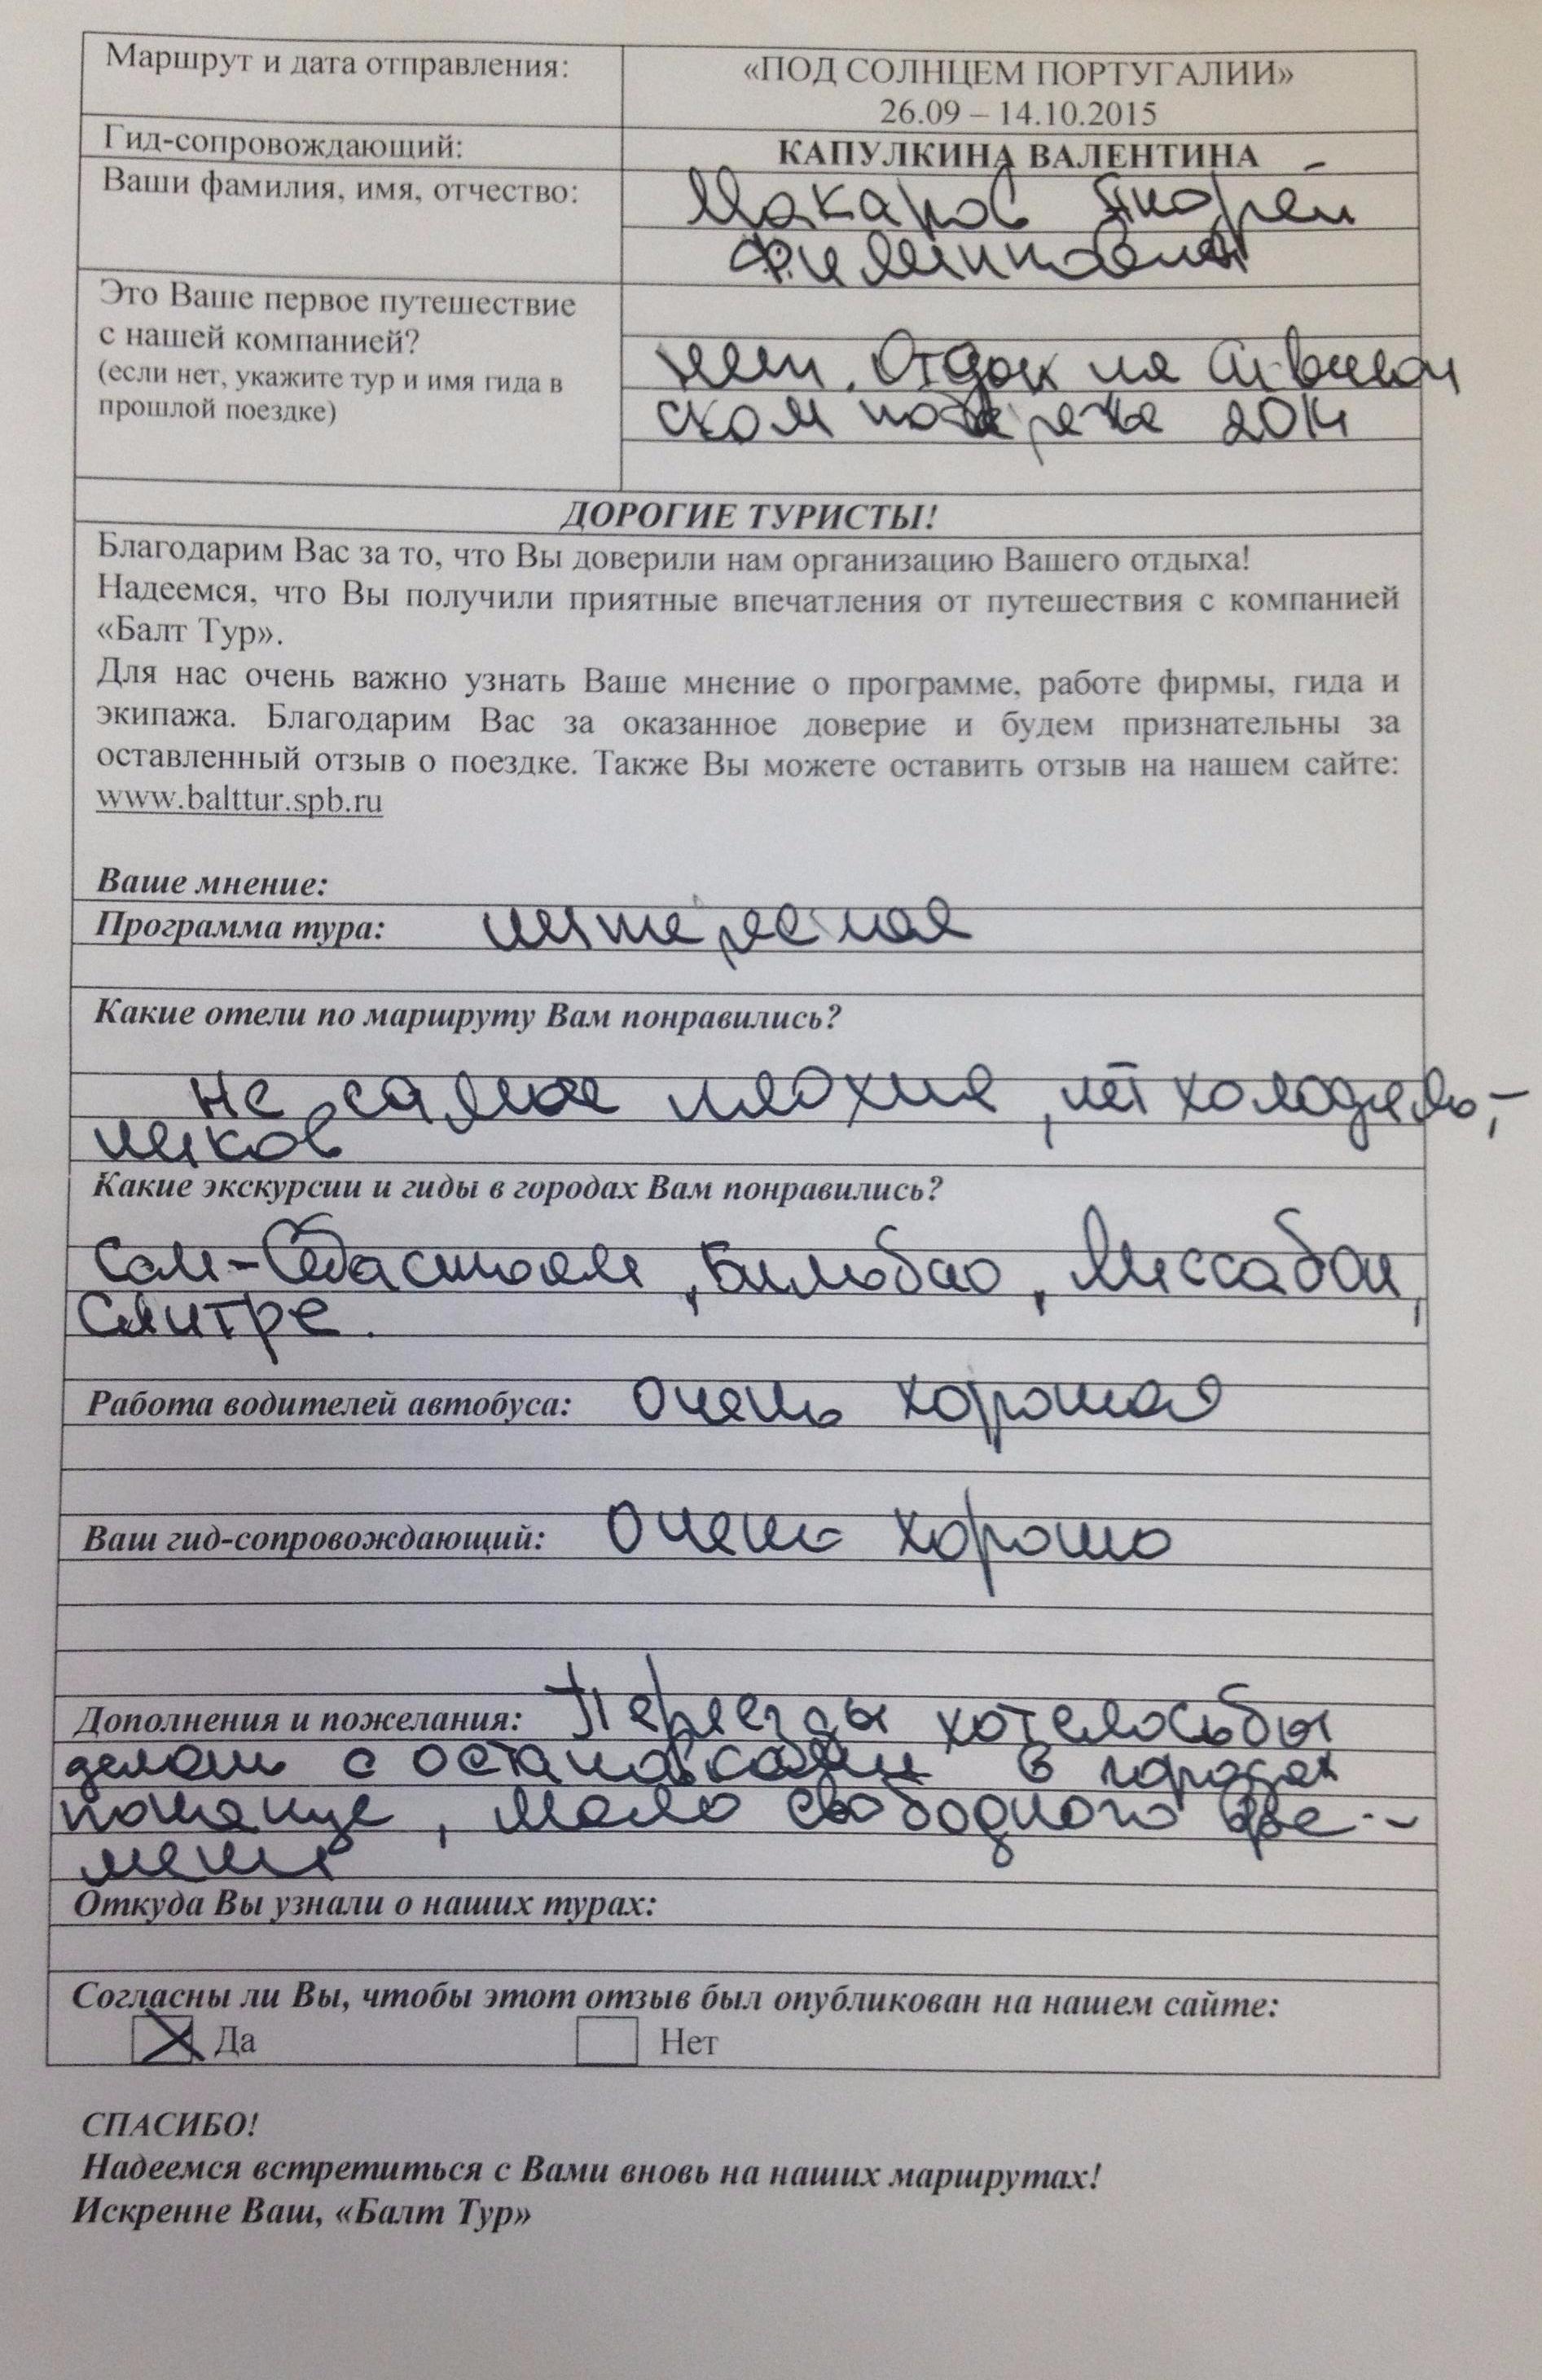 Маршрут и дата отправления:
«ПОД СОЛНЦЕМ ПОРТУГАЛИИ»
26.09 – 14.10.2015
Гид-сопровождающий:
КАПУЛКИНА ВАЛЕНТИНА
Ваши фамилия, имя, отчество:
Макаров Андрей
Филиппович
Это Ваше первое путешествие
с нашей компанией?
(если нет, укажите тур и имя гида в
прошлой поездке)
нет. Отдых на
ском побережье 2014
ДОРОГИЕ ТУРИСТЫ!
Благодарим Вас за то, что Вы доверили нам организацию Вашего отдыха!
Надеемся, что Вы получили приятные впечатления от путешествия с компанией
«Балт Тур».
Для нас очень важно узнать Ваше мнение о программе, работе фирмы, гида и
экипажа. Благодарим Вас за оказанное доверие и будем признательны за
оставленный отзыв о поездке. Также Вы можете оставить отзыв на нашем сайте:
www.balttur.spb.ru
Ваше мнение:
Программа тура: интересная
Какие отели по маршруту Вам понравились?
не самые плохие, нет холодиль-
ников
Какие экскурсии и гиды в городах Вам понравились?
Сан-Себастьян, Бильбао, Лиссабон,
Синтре.
Работа водителей автобуса: очень хорошая
Ваш гид-сопровождающий: очень хорошо
Дополнения и пожелания: Переезды хотелось бы
делать с остановками в городах
почаще, мало свободного вре-
мени
Откуда Вы узнали о наших турах:
Согласны ли Вы, чтобы этот отзыв был опубликован на нашем сайте:
Да Нет
СПАСИБО!
Надеемся встретиться с Вами вновь на наших маршрутах!
Искренне Ваш, «Балт Тур»